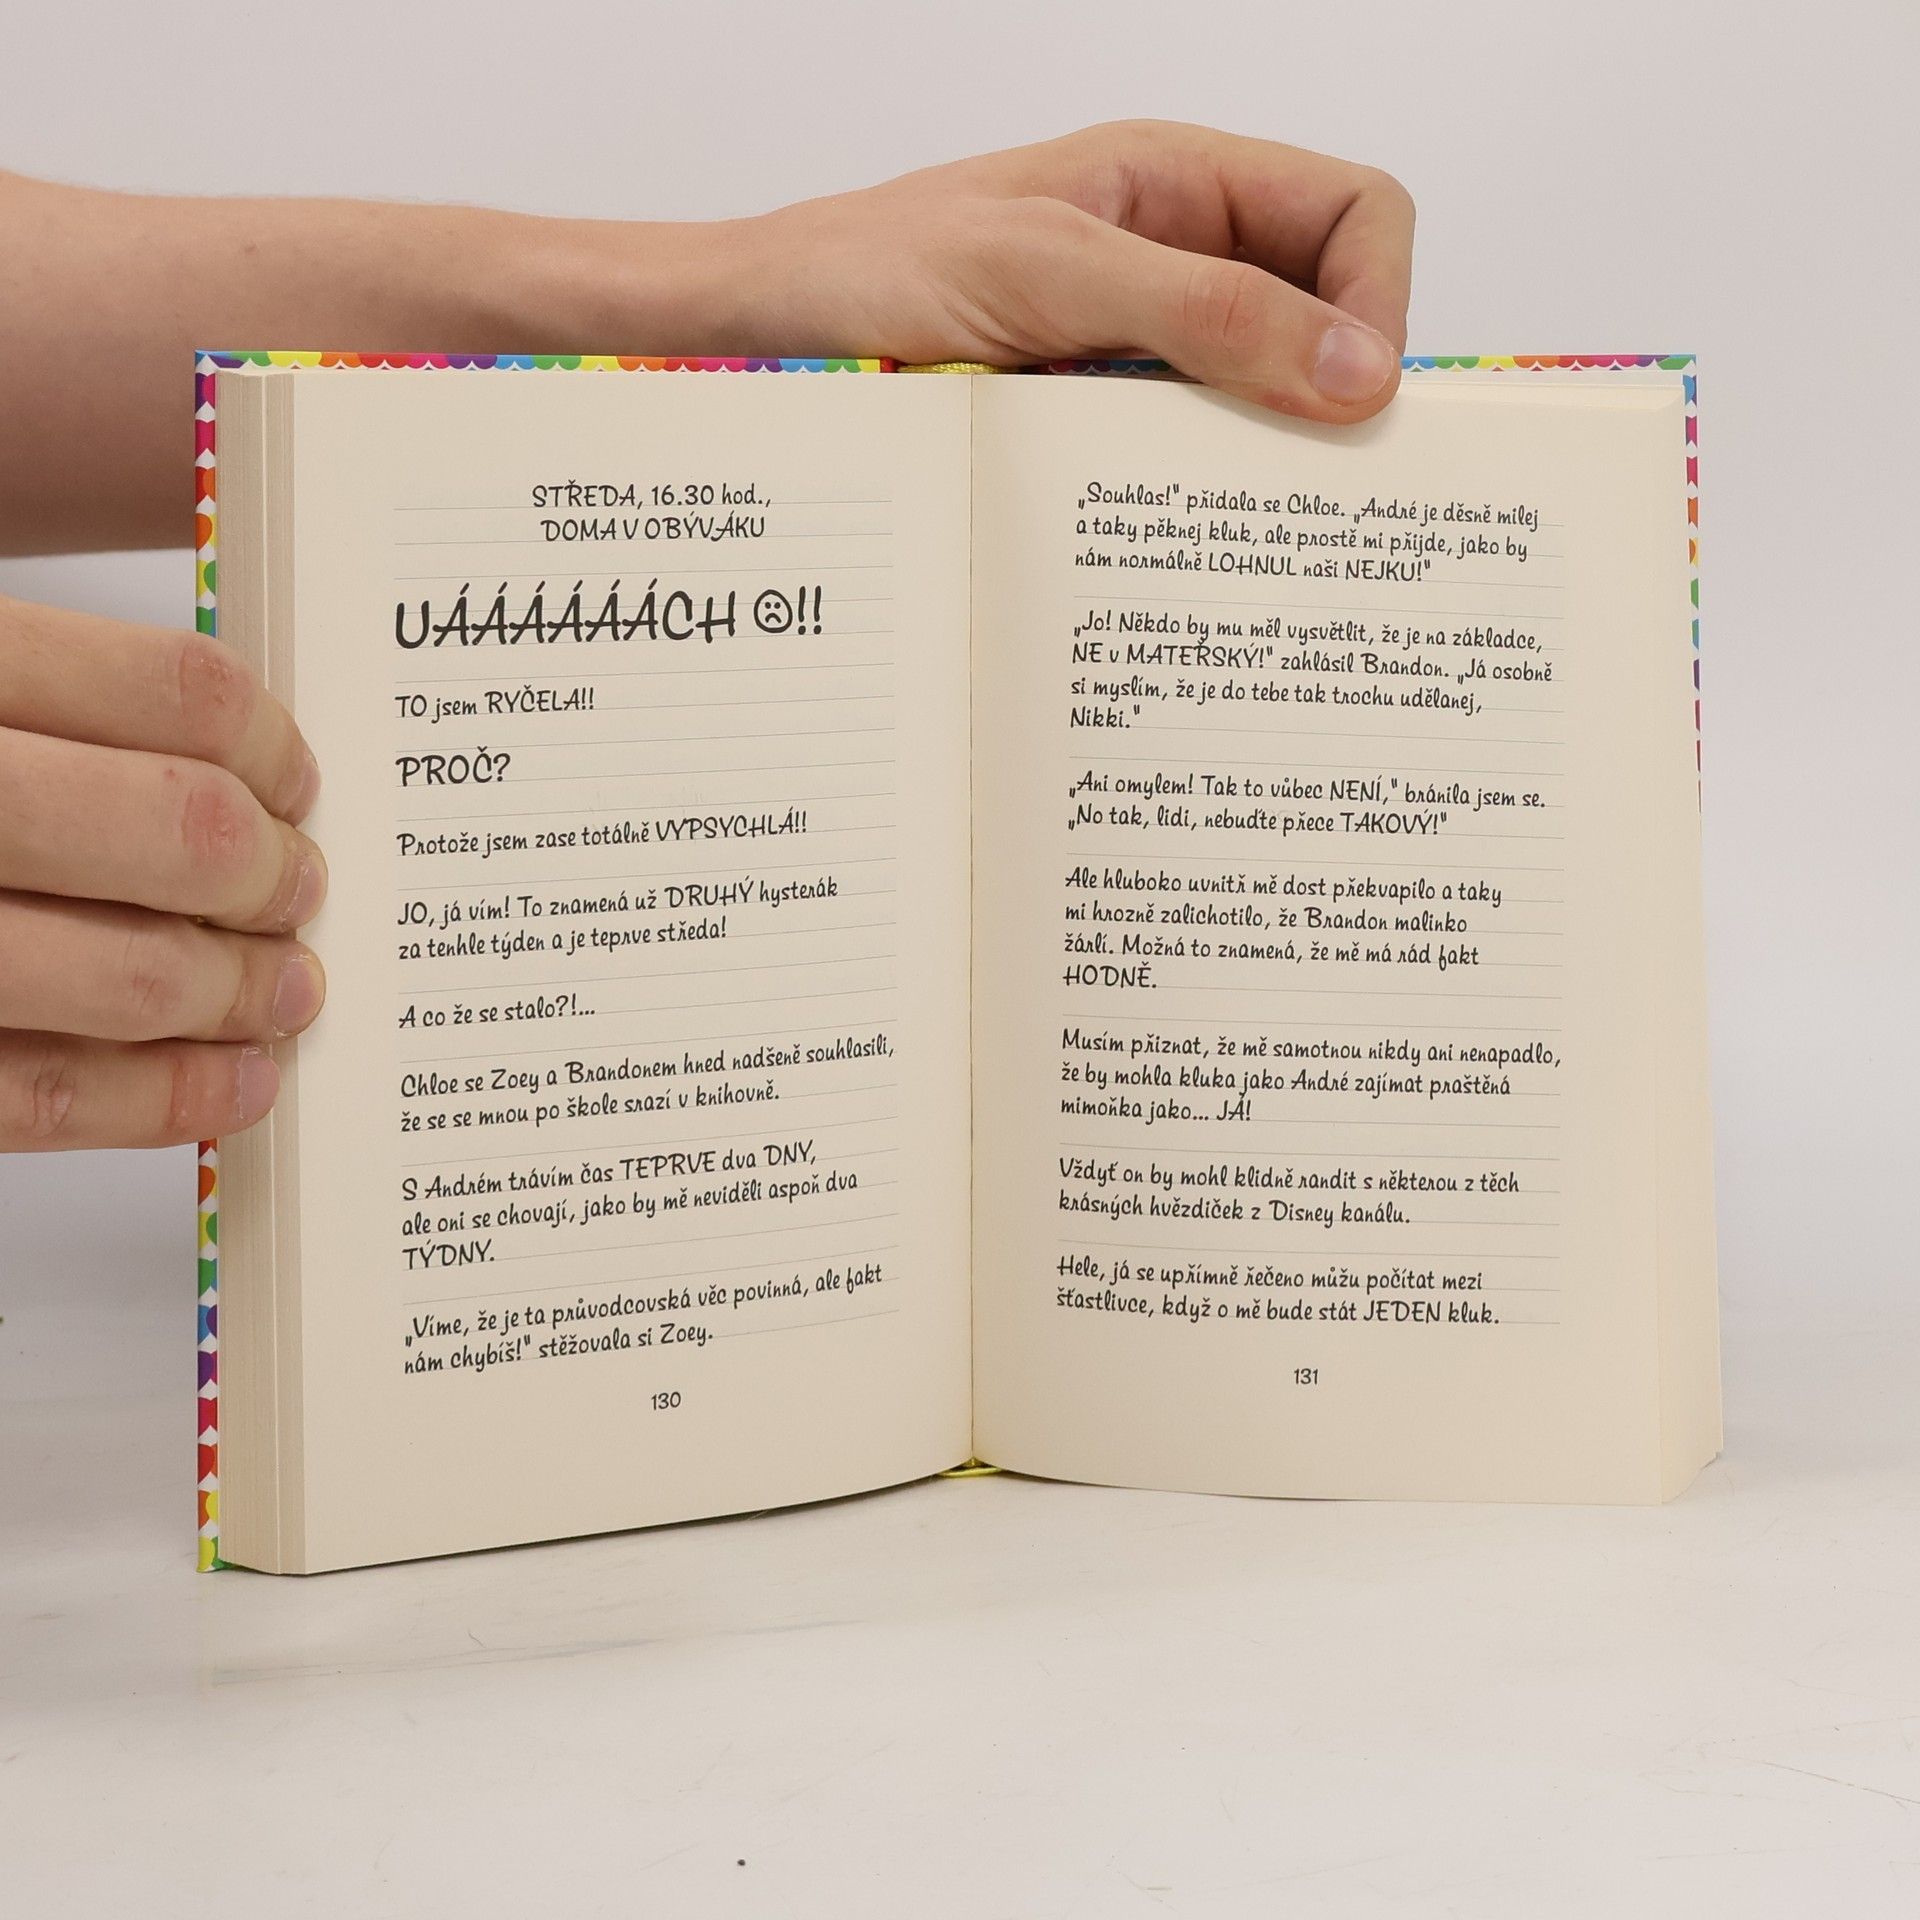 STŘEDA, 16.30 hod.,
DOMA V OBÝVÁKU
UÁÁÁÁÁÁCH ☹!!
TO jsem RYČELA!!
PROČ?
Protože jsem zase totálně VYPSYCHLÁ!!
JO, já vím! To znamená už DRUHÝ hysterák
za tenhle týden a je teprve středa!
A co že se stalo?!...
Chloe se Zoey a Brandonem hned nadšeně souhlasili,
že se se mnou po škole srazí v knihovně.
S Andrém trávím čas TEPRVE dva DNY,
ale oni se chovají, jako by mě neviděli aspoň dva
TÝDNY.
„Víme, že je ta průvodcovská věc povinná, ale fakt
nám chybíš!" stěžovala si Zoey.
130
„Souhlas!" přidala se Chloe. „André je děsně milej
a taky pěknej kluk, ale prostě mi přijde, jako by
nám normálně LOHNUL naši NEJKU!"
„Jo! Někdo by mu měl vysvětlit, že je na základce,
NE v MATEŘSKÝ!" zahlásil Brandon. „Já osobně
si myslím, že je do tebe tak trochu udělanej,
Nikki."
„Ani omylem! Tak to vůbec NENÍ," bránila jsem se.
„No tak, lidi, nebuďte přece TAKOVÝ!"
Ale hluboko uvnitř mě dost překvapilo a taky
mi hrozně zalichotilo, že Brandon malinko
žárlí. Možná to znamená, že mě má rád fakt
HODNĚ.
Musím přiznat, že mě samotnou nikdy ani nenapadlo,
že by mohla kluka jako André zajímat praštěná
mimoňka jako... JÁ!
Vždyť on by mohl klidně randit s některou z těch
krásných hvězdiček z Disney kanálu.
Hele, já se upřímně řečeno můžu počítat mezi
šťastlivce, když o mě bude stát JEDEN kluk.
131